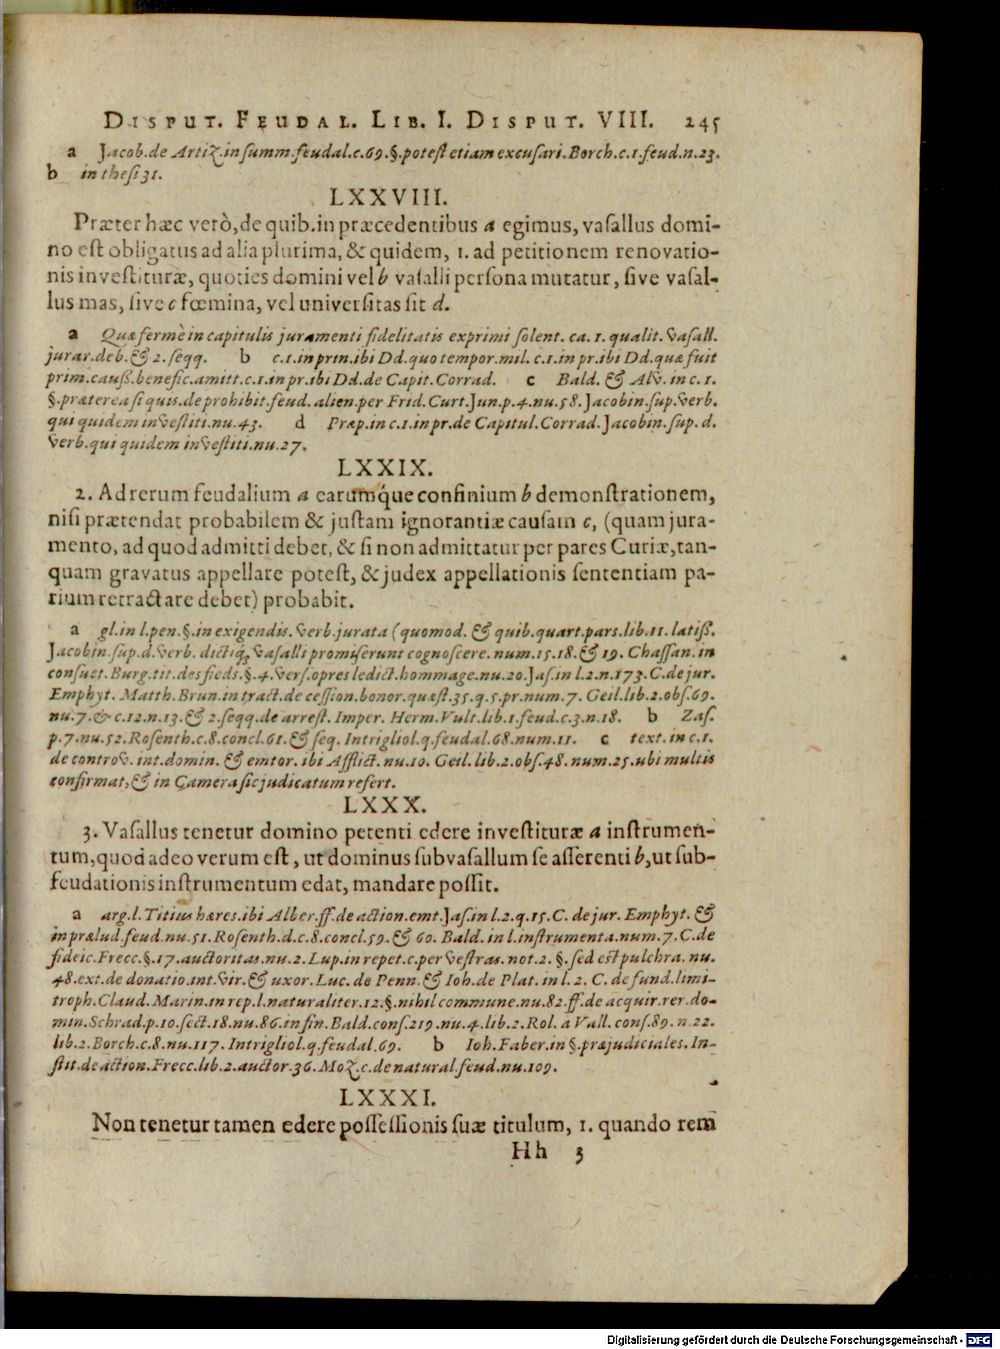 DISPUT. FEUDAL. LIB. I. DISPUT. VIII. 245
a Jacob.de Artiz.in summ.feudal.c.69.§.potest etiam excusari.Borch.c.1.feud.n.23.
b in thesi 31.
LXXVIII.
Præter hæc verò, de quib.in præcedentibus a egimus, vasallus domi-
no est obligatus ad alia plurima, & quidem, 1. ad petitionem renovatio-
nis investituræ, quoties domini vel b vasalli persona mutatur, sive vasal-
lus mas, sive c fœmina, vel universitas sit d.
a Quæ fermè in capitulis juramenti fidelitatis exprimi solent. ca. 1. qualit. vasall.
jurar.deb.& 2. seqq. b c.1.in prin.ibi Dd.quo tempor.mil. c.1.in pr.ibi Dd.quæ fuit
prim.causs.benefic.amitt.c.1.in pr.ibi Dd.de Capit.Corrad. c Bald. & Alv. in c. 1.
§.præterea si quis.de prohibit.feud. alien.per Frid. Curt.Jun.p.4.nu.58. Jacobin.sup.verb.
qui quidem investiti.nu.43. d Præp.in c.1.in pr.de Capitul.Corrad.Jacobin.sup. d.
verb.qui quidem investiti.nu.27.
LXXIX.
2. Ad rerum feudalium a earumq́ue confinium b demonstrationem,
nisi prætendat probabilem & justam ignorantiæ causam c, (quam jura-
mento, ad quod admitti debet, & si non admittatur per pares Curiæ, tan-
quam gravatus appellare potest, & judex appellationis sententiam pa-
rium retractare debet) probabit.
a gl.in l.pen.§.in exigendis.verb.jurata (quomod. & quib.quart.pars.lib.11.latiss.
Jacobin.sup.d.verb. dictiq́; vasalli promiserunt cognoscere.num.15.18.& 19. Chassan.in
consuet.Burg.tit.des fieds.§.4.vers.opres ledict.hommage.nu.20.Jas.in l.2.n.173.C.de jur.
Emphyt. Matth.Brun.in tract.de cession.bonor.quæst.35.q.5.pr.num.7. Geil.lib.2.obs.69.
nu.7.& c.12.n.13.& 2.seqq.de arrest. Imper. Herm.Vult.lib.1.feud.c.3.n.18. b Zas.
p.7.nu.52.Rosenth.c.8.concl.61.& seq. Intrigliol.q.feudal.68.num.11. c text.in c.1.
de controv. int.domin. & emtor. ibi Afflict.nu.10. Geil.lib.2.obs.48. num.25.ubi multis
confirmat,& in Camera sic judicatum refert.
LXXX.
3. Vasallus tenetur domino petenti edere investituræ a instrumen-
tum, quod adeo verum est, ut dominus subvasallum se asserenti b, ut sub-
feudationis instrumentum edat, mandare possit.
a arg.l.Titius hæres.ibi Alber.ff.de action.emt.Jas.in l.2.q.15.C. de jur. Emphyt. &
in prælud.feud.nu.51.Rosenth.d.c.8.concl.59.& 60. Bald. in l.instrumenta.num.7.C.de
fideic.Frecc.§.17.auctoritas.nu.2.Lup.in repet.c.per vestras.not.2.§.sed est pulchra.nu.
48.ext.de donatio.int.vir.& uxor. Luc. de Penn.& Ioh.de Plat. in l. 2. C. de fund.limi-
troph.Claud.Marin.in rep.l.naturaliter.12.§.nihil commune.nu.82.ff.de acquir.rer.do-
min.Schrad.p.10.sect.18.nu.86.in fin. Bald.cons.219.nu.4.lib.2. Rol. a Vall. cons.89.n.22.
lib.2.Borch.c.8.nu.117.Intrigliol.q.feudal.69. b Ioh.Faber.in §.præjudiciales.In-
stit.de action.Frecc.lib.2.auctor.36.Moz.c.de natural.feud.nu.109.
LXXXI.
Non tenetur tamen edere possessionis suæ titulum, 1. quando rem
Hh 3
Digitalisierung gefördert durch die Deutsche Forschungsgemeinschaft - DFG